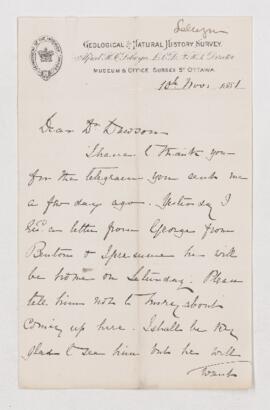 Selwyn
GEOLOGICAL & NATURAL HISTORY SURVEY.
Alfred R. C. Selwyn, L.L.D. F.R.S. Director
MUSEUM & OFFICE SUSSEX ST OTTAWA.
10th Novr 1881
Dear Dr Dawson
I have to thank you
for the telegram you sent me
a few days ago. Yesterday I
a letter from George from
Benton & I presume he will
be home on Saturday. Please
tell him not to hurry about
coming up here. I shall be very
glad to see him but he will
want